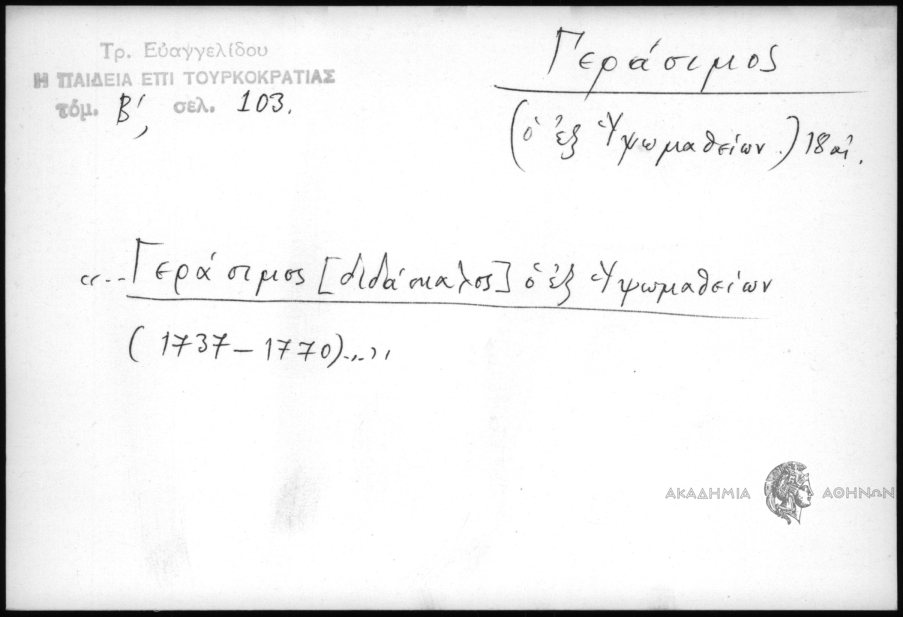 Τρ. Εὐαγγελίδου
Η ΠΑΙΔΕΙΑ ΕΠΙ ΤΟΥΡΚΟΚΡΑΤΙΑΣ
τόμ. Β΄, σελ. 103.
Γεράσιμος
(ὁ ἐξ Ὑψωμαθείων) 18 αἰ.
«... Γεράσιμος [διδάσκαλος] ὁ ἐξ Ὑψωμαθείων
(1737–1770)...»
ΑΚΑΔΗΜΙΑ ΑΘΗΝΩΝ